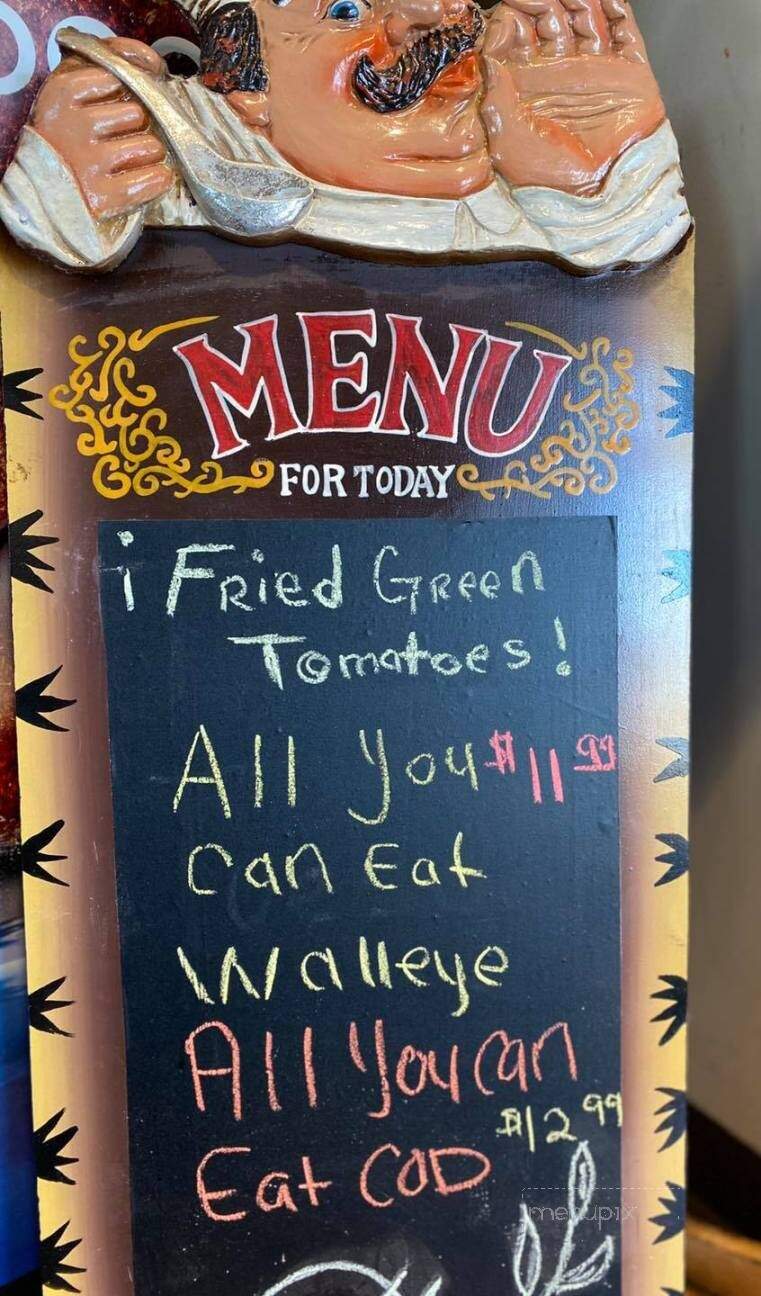 MENU
FOR TODAY
¡ Fried Green
Tomatoes!
All You $11.99
Can Eat
Walleye
All You Can
$12.99
Eat COD
menupix